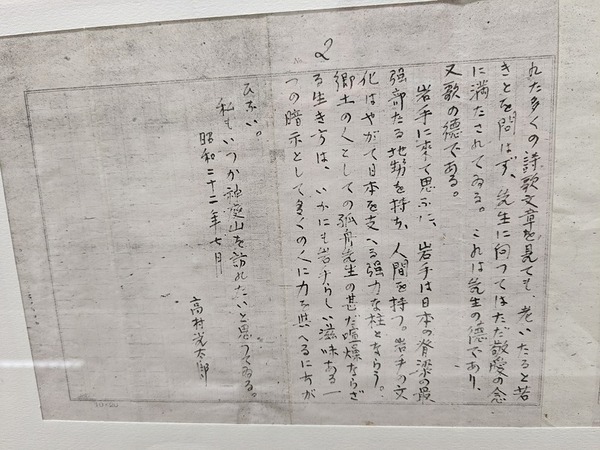 2
れた多くの詩歌文章を見ても、老いたると若
きとを問はず、先生に向つてはただ敬愛の念
に満たされてゐる。これは先生の徳であり、
又歌の徳である。
岩手に來て思ふに、岩手は日本の脊梁の最
強部たる地勢を持ち、人間を持つ。岩手の文
化はやがて日本を支へる強力な柱とならう。
郷土の人としての孤舟先生の甚だ喧燥ならざ
る生き方は、いかにも岩手らしい滋味ある一
つの暗示として多くの人に力を與へるにちが
ひない。
私もいつか山を訪れたいと思つてゐる。
昭和二十二年七月
高村光太郎